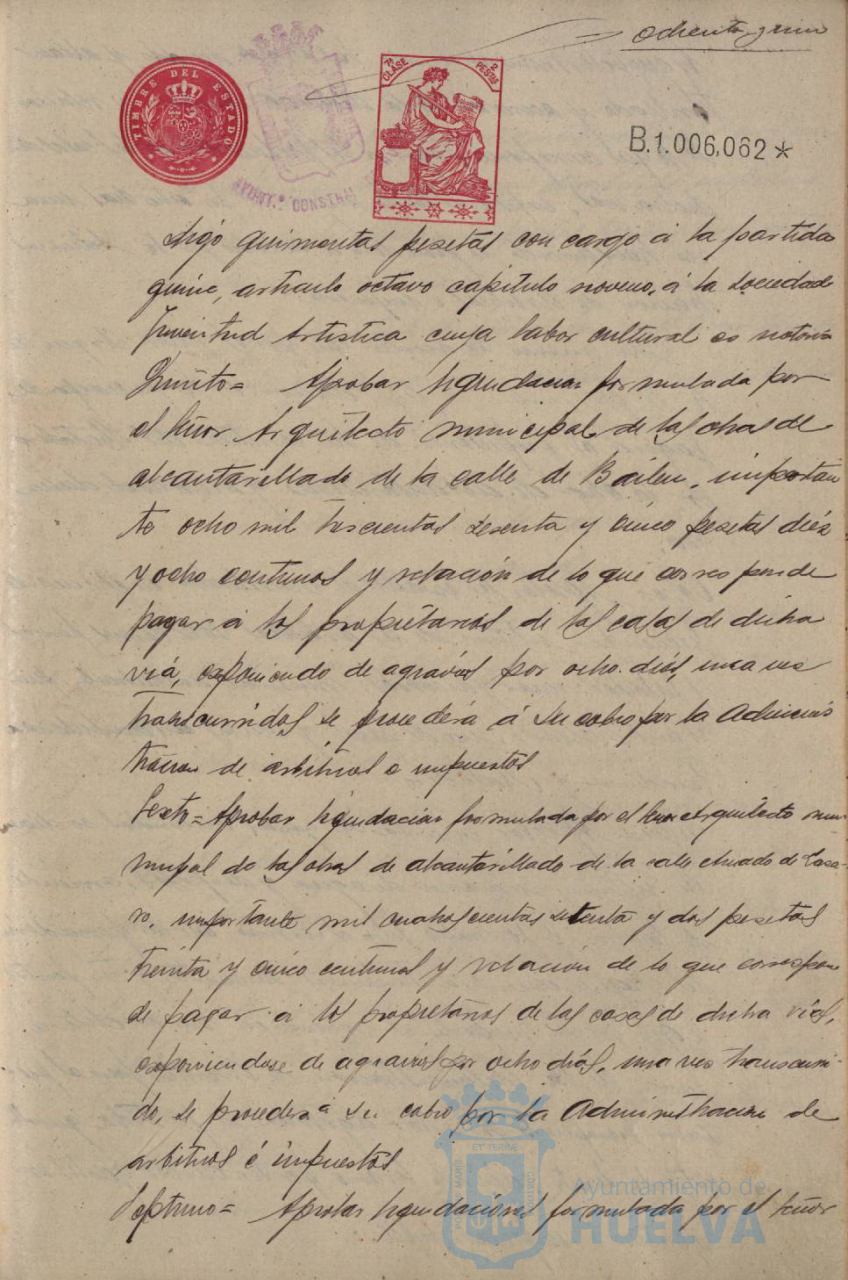 ochenta y uno
TIMBRE DEL ESTADO
7ª CLASE 2 PESETAS
AYUNT.º CONSTNAL
B.1.006,062*
quinientas pesetas con cargo á la partida
quinc, artículo octavo capítulo noveno, á la Sociedad
Juventud Artistica cuya labor cultural es notoria
Quinto= Aprobar liquidacion formulada por
el Señor Arquitecto municipal de las obras de
alcantarillado de la calle de Bailen, importan
te ocho mil trescientas sesenta y cinco pesetas diéz
y ocho centimos y relación de lo que corresponde
pagar á los propietarios de las casas de dicha
viá, esponiendo de agravios por ocho diás, una vez
transcurridos, se procederá á su cobro por la Adminis
tracion de arbitrios e impuestos
Sexto= Aprobar liquidacion formulada por el Señor Arquitecto mu
nicipal de las obras de alcantarillado de la calle
importante mil cuatrocientas setenta y dos pesetas
treinta y cinco centimos y relación de lo que correspon
de pagar á los propietarios de las casas de dicha viás,
esponiendose de agravios por ocho diás, una vez transcurri-
do, se procederá su cobro por la Administracion de
arbitrios é impuestos
Septimo= Aprobar liquidaciones formulada por el Señor
Ayuntamiento de
HUELVA